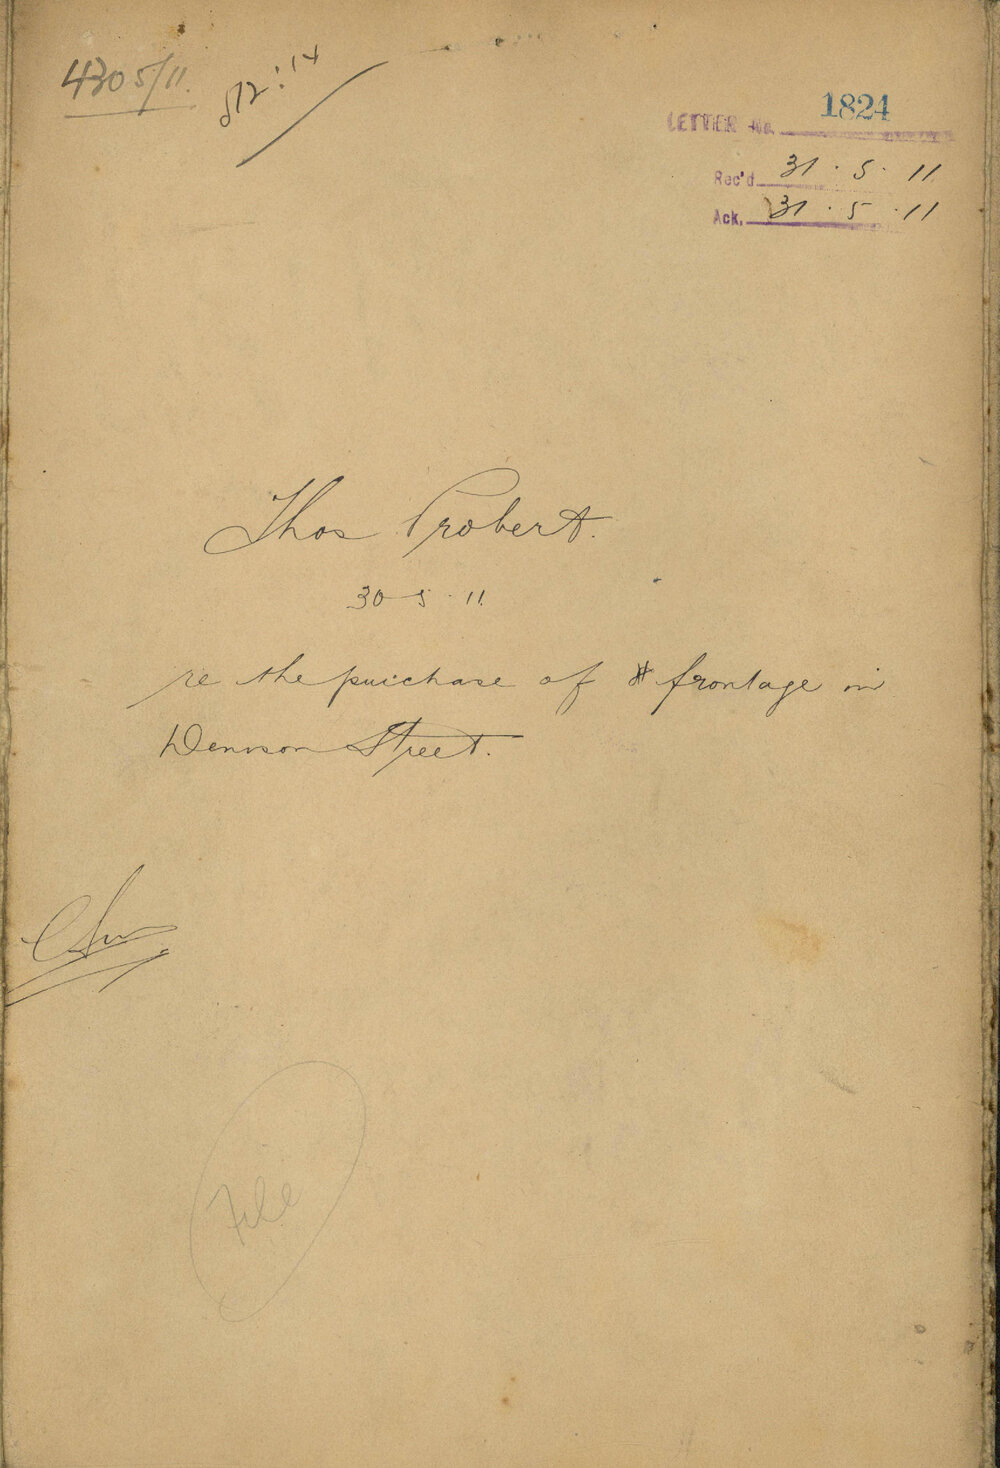 4305/11.
512:14
LETTER No. 1824
Rec'd 31.5.11
Ack. 31.5.11
Thos Probert.
30-5-11.
re the purchase of frontage in
Dennison Street.
File